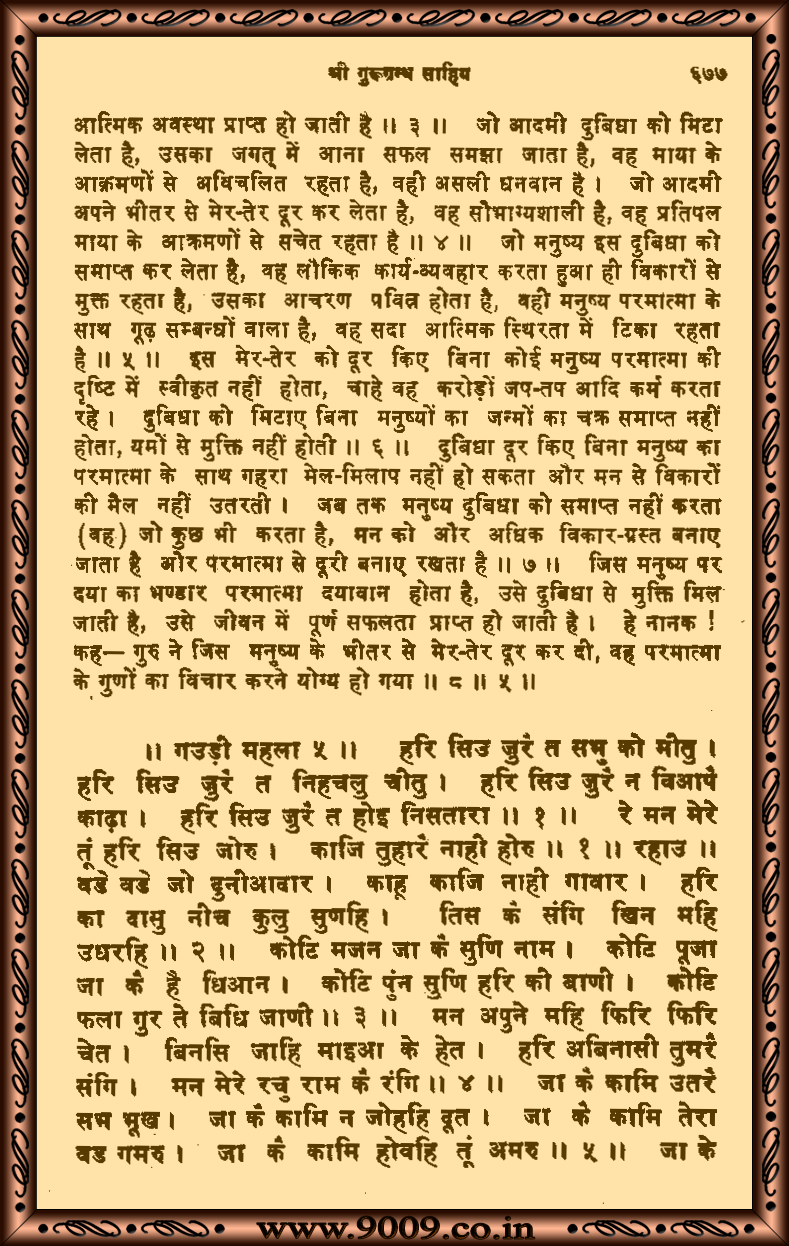 श्री गुरूग्रन्थ साहिब ६७७
आत्मिक अवस्था प्राप्त हो जाती है ॥ ३ ॥ जो आदमी दुबिधा को मिटा
लेता है, उसका जगत् में आना सफल समझा जाता है, वह माया के
आक्रमणों से अविचलित रहता है, वही असली धनवान है । जो आदमी
अपने भीतर से मेर-तेर दूर कर लेता है, वह सौभाग्यशाली है, वह प्रतिपल
माया के आक्रमणों से सचेत रहता है ॥ ४ ॥ जो मनुष्य इस दुबिधा को
समाप्त कर लेता है, वह लौकिक कार्य-व्यवहार करता हुआ ही विकारों से
मुक्त रहता है, उसका आचरण पवित्र होता है, वही मनुष्य परमात्मा के
साथ गूढ़ सम्बन्धों वाला है, वह सदा आत्मिक स्थिरता में टिका रहता
है ॥ ५ ॥ इस मेर-तेर को दूर किए बिना कोई मनुष्य परमात्मा की
दृष्टि में स्वीकृत नहीं होता, चाहे वह करोड़ों जप-तप आदि कर्म करता
रहे । दुबिधा को मिटाए बिना मनुष्यों का जन्मों का चक्र समाप्त नहीं
होता, यमों से मुक्ति नहीं होती ॥ ६ ॥ दुबिधा दूर किए बिना मनुष्य का
परमात्मा के साथ गहरा मेल-मिलाप नहीं हो सकता और मन से विकारों
की मैल नहीं उतरती । जब तक मनुष्य दुबिधा को समाप्त नहीं करता
(वह) जो कुछ भी करता है, मन को और अधिक विकार-ग्रस्त बनाए
जाता है और परमात्मा से दूरी बनाए रखता है ॥ ७ ॥ जिस मनुष्य पर
दया का भण्डार परमात्मा दयावान होता है, उसे दुबिधा से मुक्ति मिल
जाती है, उसे जीवन में पूर्ण सफलता प्राप्त हो जाती है । हे नानक !
कह— गुरु ने जिस मनुष्य के भीतर से मेर-तेर दूर कर दी, वह परमात्मा
के गुणों का विचार करने योग्य हो गया ॥ ८ ॥ ५ ॥
॥ गउड़ी महला ५ ॥ हरि सिउ जुरै त सभु को मीतु ।
हरि सिउ जुरै त निहचलु चीतु । हरि सिउ जुरै न विआपै
काढ़ा । हरि सिउ जुरै त होइ निसतारा ॥ १ ॥ रे मन मेरे
तूं हरि सिउ जोरु । काजि तुहारै नाही होरु ॥ १ ॥ रहाउ ॥
वडे वडे जो दुनीआदार । काहू काजि नाही गावार । हरि
का दासु नीच कुलु सुणहि । तिस कै संगि खिन महि
उधरहि ॥ २ ॥ कोटि मजन जा कै सुणि नाम । कोटि पूजा
जा कै है धिआन । कोटि पुंन सुणि हरि की बाणी । कोटि
फला गुर ते बिधि जाणी ॥ ३ ॥ मन अपुने महि फिरि फिरि
चेत । बिनसि जाहि माइआ के हेत । हरि अबिनासी तुमरै
संगि । मन मेरे रचु राम कै रंगि ॥ ४ ॥ जा कै कामि उतरै
सभ भूख । जा कै कामि न जोहहि दूत । जा कै कामि तेरा
वड गमरु । जा कै कामि होवहि तूं अमरु ॥ ५ ॥ जा के
www.9009.co.in